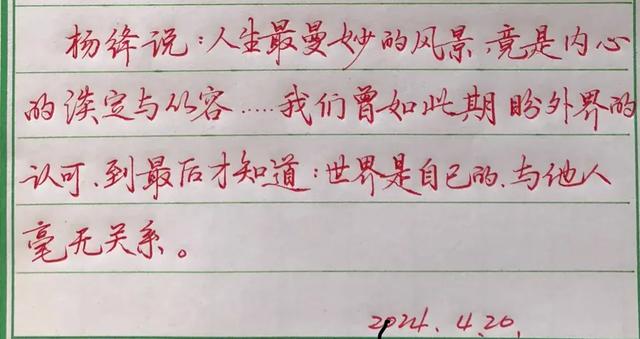 杨绛说：人生最曼妙的风景，竟是内心
的淡定与从容……我们曾如此期盼外界的
认可、到最后才知道：世界是自己的、与他人
毫无关系。
2024.4.20.